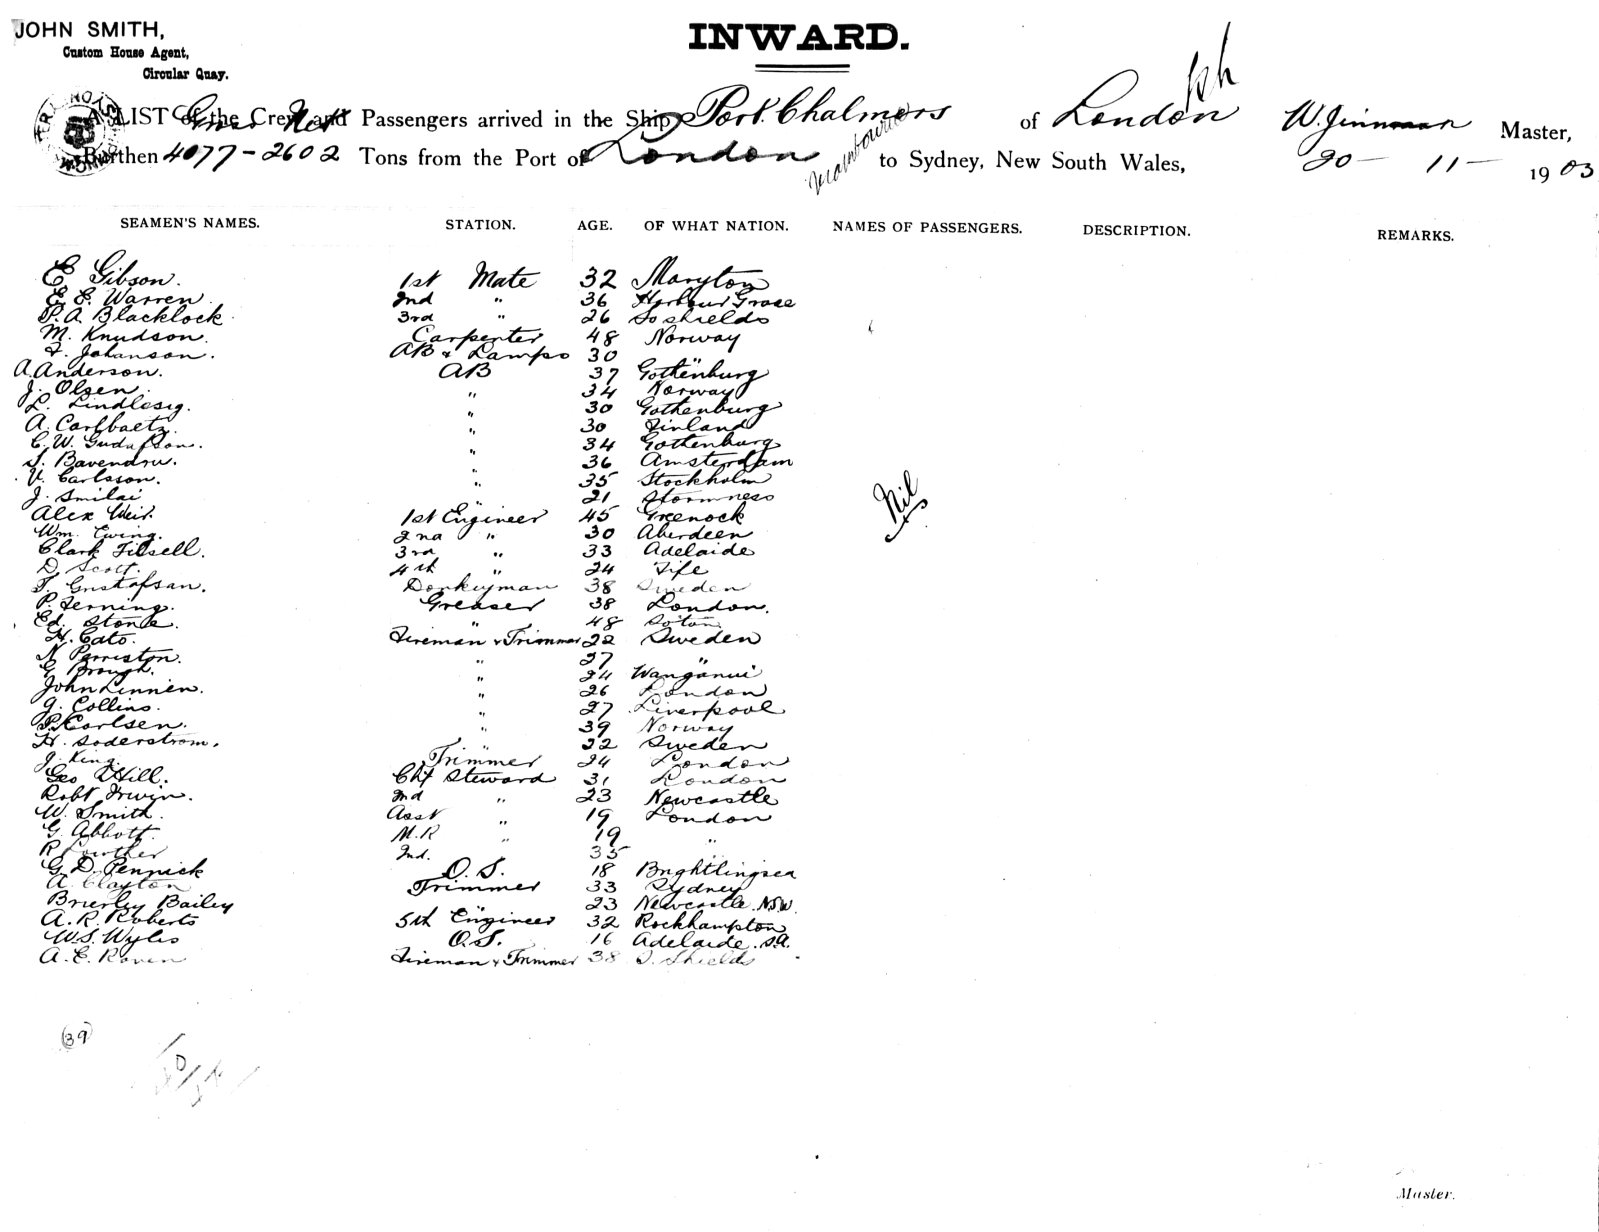 JOHN SMITH,
Custom House Agent,
Circular Quay.
INWARD.
A LIST of the Crew and Passengers arrived in the Ship Port Chalmers of London W. Jinman Master,
Gross Net
Burthen 4077 - 2602 Tons from the Port of London to Sydney, New South Wales, 20 - 11 - 1903
SEAMEN'S NAMES. STATION. AGE. OF WHAT NATION. NAMES OF PASSENGERS. DESCRIPTION. REMARKS.
E Gibson. 1st Mate 32 Maryton
E. E. Warren 2nd " 36 Harbour Grace
P. A. Blacklock 3rd " 26 So Shields
M. Knudson. Carpenter 48 Norway
Johanson. AB & Lamps 30 "
A. Anderson. AB 37 Gothenburg
J. Olsen " 34 Norway
L. " 30 Gothenburg
A. " 30 Finland
C. W. Gudafson. " 34 Gothenburg
" 36 Amsterdam
V. Carlsson. " 35 Stockholm
J. Smilai " 21 Stormness
Alex Weir. 1st Engineer 45 Greenock
Wm. Ewing. 2nd " 30 Aberdeen
Clark Filsell. 3rd " 33 Adelaide
D. Scott. 4th " 24 Fife
Gustafsan. Donkeyman 38 Sweden
P. Ferning. Greaser 38 London.
Ed. Stone. " 48 So'ton
H. Cato. Fireman & Trimmer 22 Sweden
N Perriston. " 27 "
G Brough. " 24 Wanganui
John Linnen. " 26 London
G. Collins. " 27 Liverpool
P. Carlsen. " 39 Norway
H. Soderstrom. " 22 Sweden
J. King. Trimmer 24 London
Geo Hill. Chf Steward 31 London
Robt Irwin. 2nd " 23 Newcastle
W. Smith. Asst " 19 London
G. Abbott. M.R " 19 "
R Lowther 2nd. 35 "
G. D. Pennick O. S. 18 Brightlingsea
A. Clayton Trimmer 33 Sydney
Brierley Bailey " 23 Newcastle. NSW.
A. R. Roberts 5th Engineer 32 Rockhampton
W. S. Wyles O.S. 16 Adelaide. S.A.
A. E. Fireman & Trimmer 38 S. Shields
Nil
39
Master.